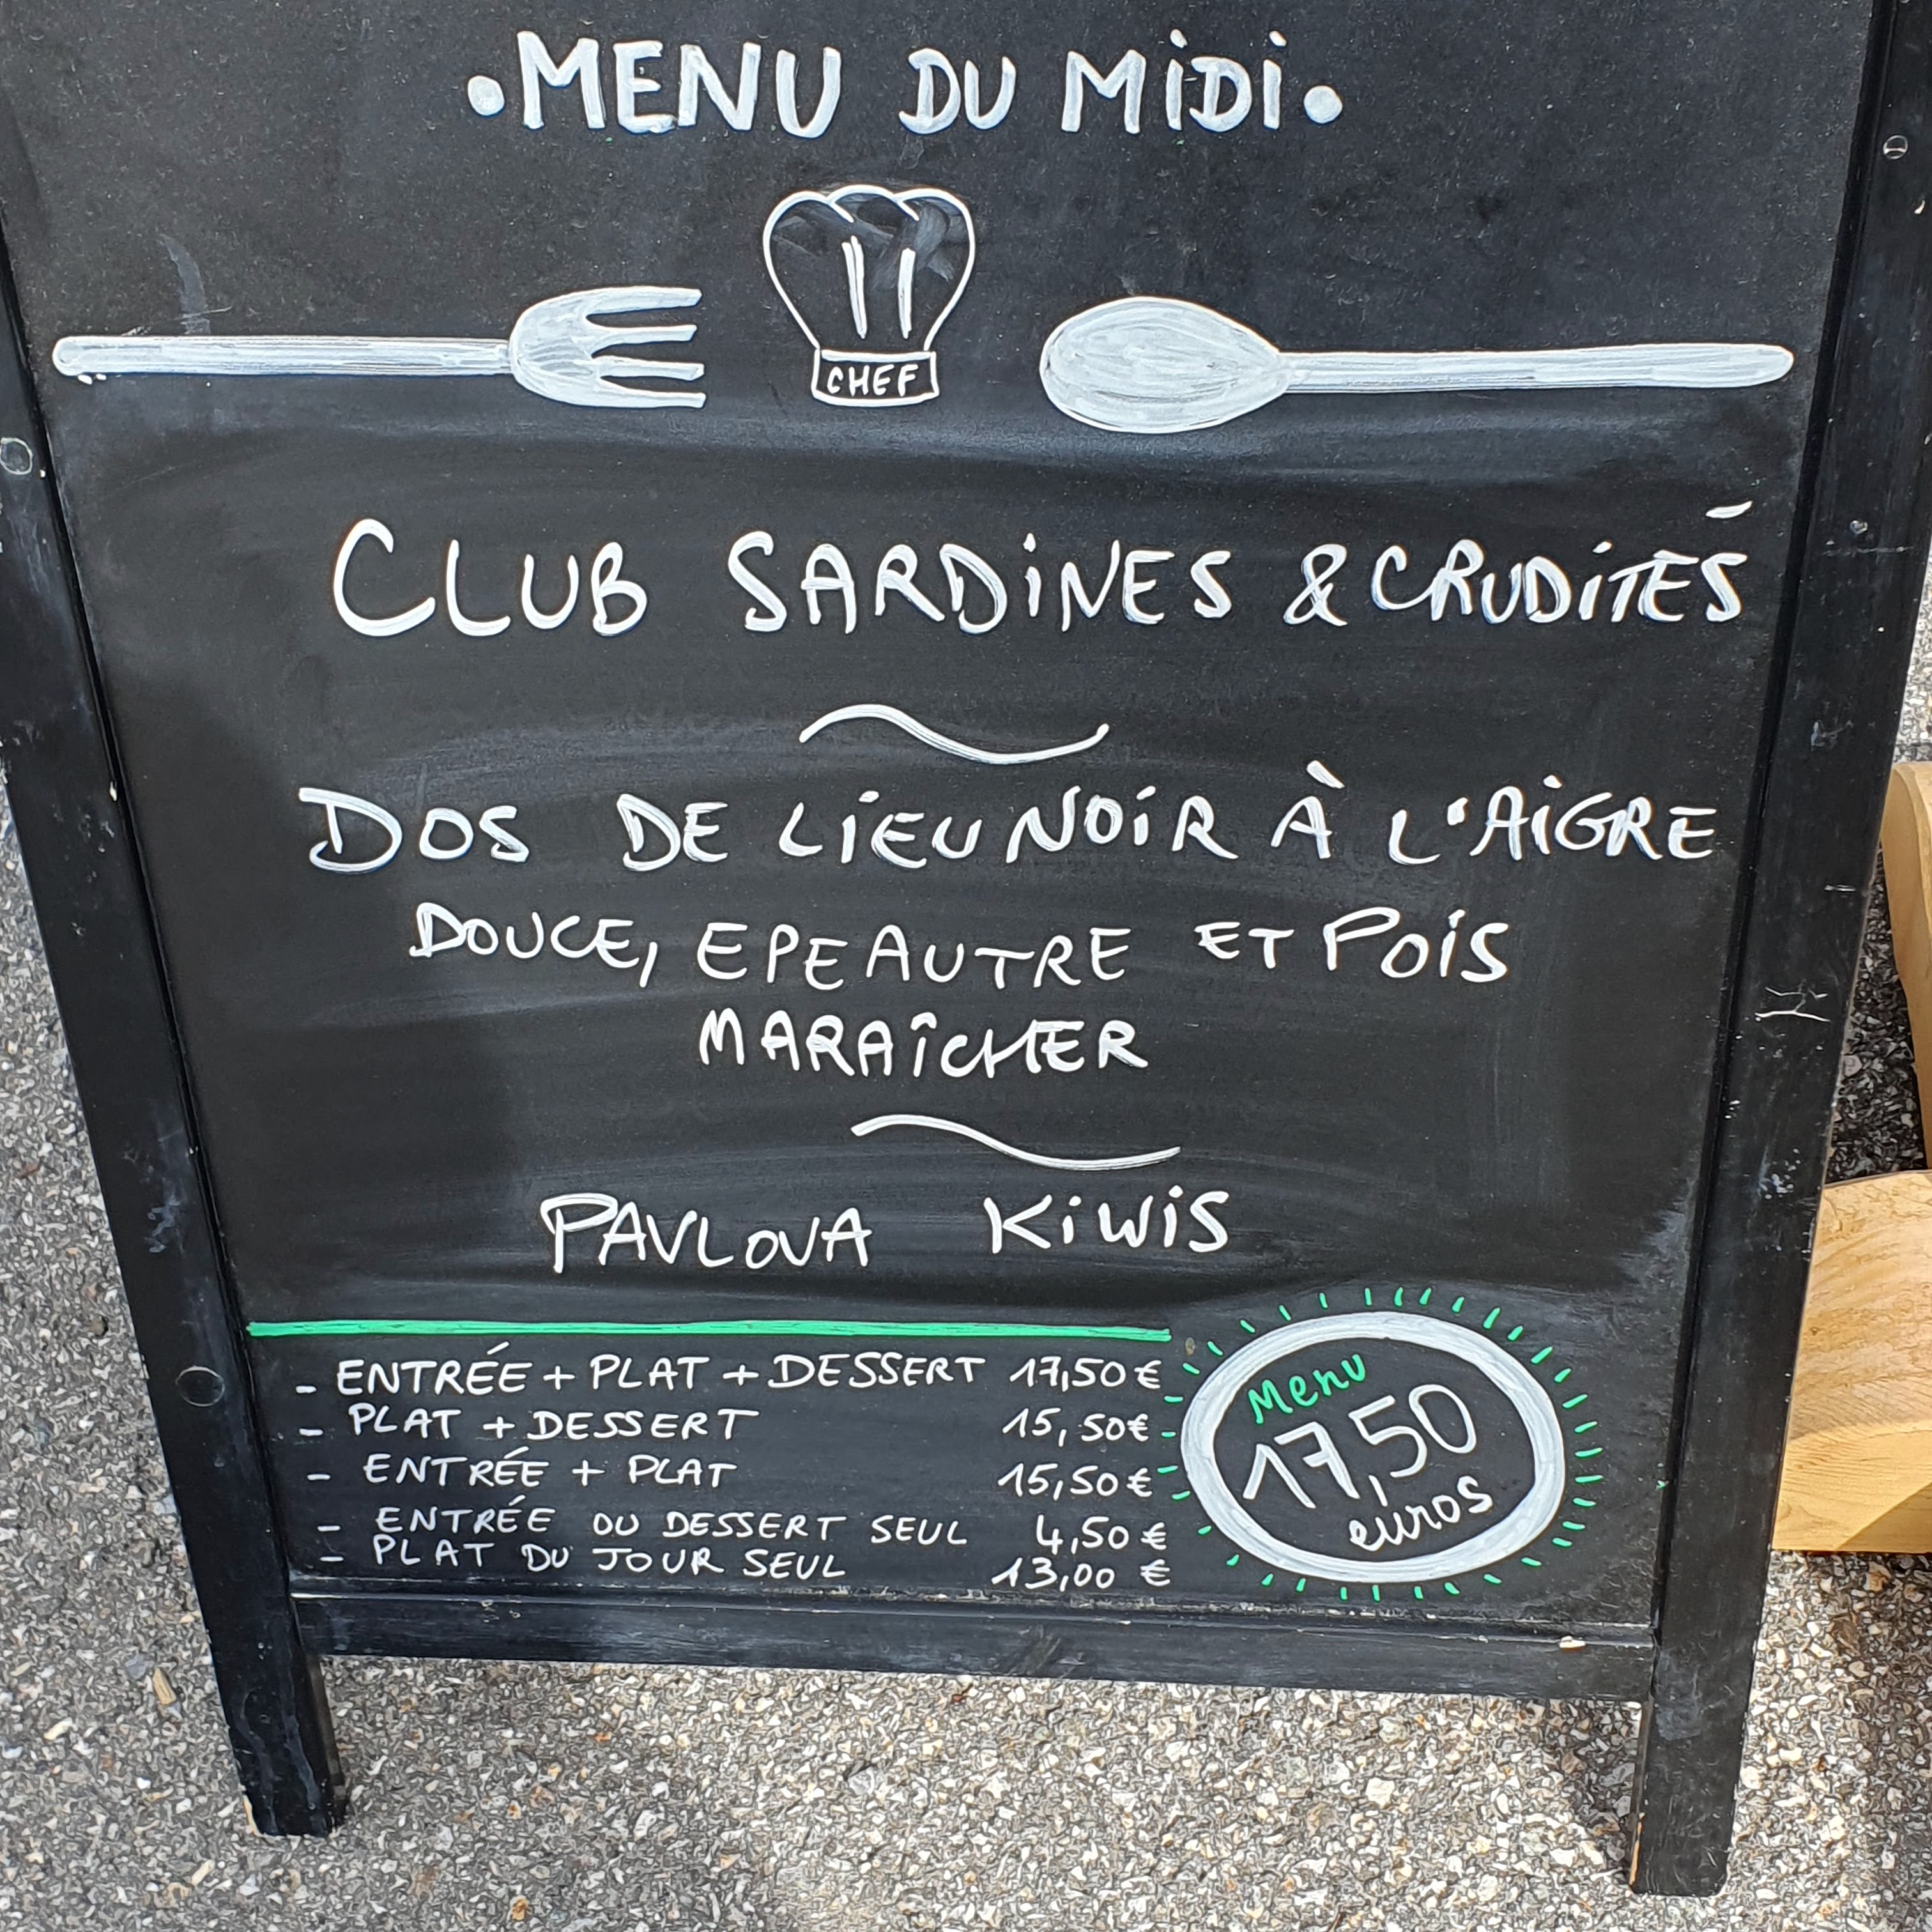 •MENU DU MiDi•
CHEF
CLUB SARDiNES & CRUDiTÉS
DOS DE LiEU NOiR À L'AiGRE
DOUCE, EPEAUTRE ET POiS
MARAÎCHER
PAVLOVA KiWiS
- ENTRÉE + PLAT + DESSERT 17,50 €
- PLAT + DESSERT 15,50 €
- ENTRÉE + PLAT 15,50 €
- ENTRÉE OU DESSERT SEUL 4,50 €
- PLAT DU JOUR SEUL 13,00 €
Menu
17,50
euros